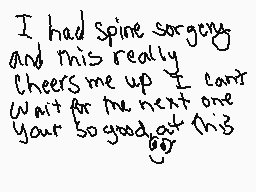 I had spine sorgery
and this really
cheers me up I can't
wait for the next one
your so good at this